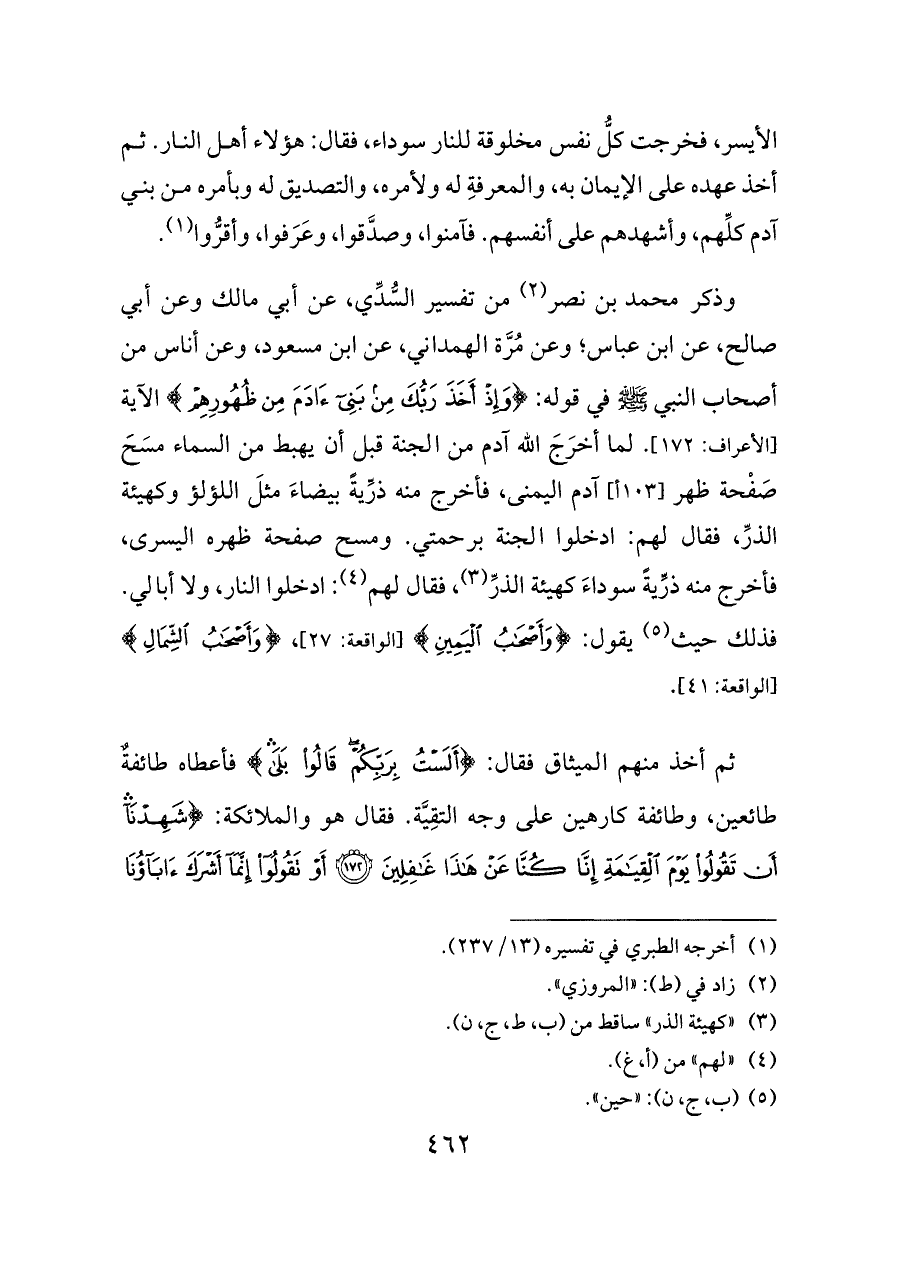 الأيسر، فخرجت كلُّ نفس مخلوقة للنار سوداء، فقال: هؤلاء أهل النار. ثم
أخذ عهده على الإيمان به، والمعرفةِ له ولأمره، والتصديق له وبأمره من بني
آدم كلِّهم، وأشهدهم على أنفسهم. فآمنوا، وصدَّقوا، وعَرَفوا، وأقرُّوا(١).
وذكر محمد بن نصر(٢) من تفسير السُّدِّي، عن أبي مالك وعن أبي
صالح، عن ابن عباس؛ وعن مُرَّة الهمداني، عن ابن مسعود، وعن أناس من
أصحاب النبي ﷺ في قوله: ﴿وَإِذۡ أَخَذَ رَبُّكَ مِنۢ بَنِيٓ ءَادَمَ مِن ظُهُورِهِمۡ﴾ الآية
[الأعراف: ١٧٢]. لما أخرَجَ الله آدم من الجنة قبل أن يهبط من السماء مسَحَ
صَفْحة ظهر [١٠٣أ] آدم اليمنى، فأخرج منه ذرِّيةً بيضاءَ مثلَ اللؤلؤ وكهيئة
الذرِّ، فقال لهم: ادخلوا الجنة برحمتي. ومسح صفحة ظهره اليسرى،
فأخرج منه ذرِّيةً سوداءَ كهيئة الذرِّ(٣)، فقال لهم(٤): ادخلوا النار، ولا أبالي.
فذلك حيث(٥) يقول: ﴿وَأَصۡحَٰبُ ٱلۡيَمِينِ﴾ [الواقعة: ٢٧]، ﴿وَأَصۡحَٰبُ ٱلشِّمَالِ﴾
[الواقعة: ٤١].
ثم أخذ منهم الميثاق فقال: ﴿أَلَسۡتُ بِرَبِّكُمۡۖ قَالُواْ بَلَىٰۛ﴾ فأعطاه طائفةٌ
طائعين، وطائفة كارهين على وجه التقِيَّة. فقال هو والملائكة: ﴿شَهِدۡنَآۛ
أَن تَقُولُواْ يَوۡمَ ٱلۡقِيَٰمَةِ إِنَّا كُنَّا عَنۡ هَٰذَا غَٰفِلِينَ ١٧٢ أَوۡ تَقُولُوٓاْ إِنَّمَآ أَشۡرَكَ ءَابَآؤُنَا
(١) أخرجه الطبري في تفسيره (١٣/ ٢٣٧).
(٢) زاد في (ط): «المروزي».
(٣) «كهيئة الذر» ساقط من (ب، ط، ج، ن).
(٤) «لهم» من (أ، غ).
(٥) (ب، ج، ن): «حين».
٤٦٢